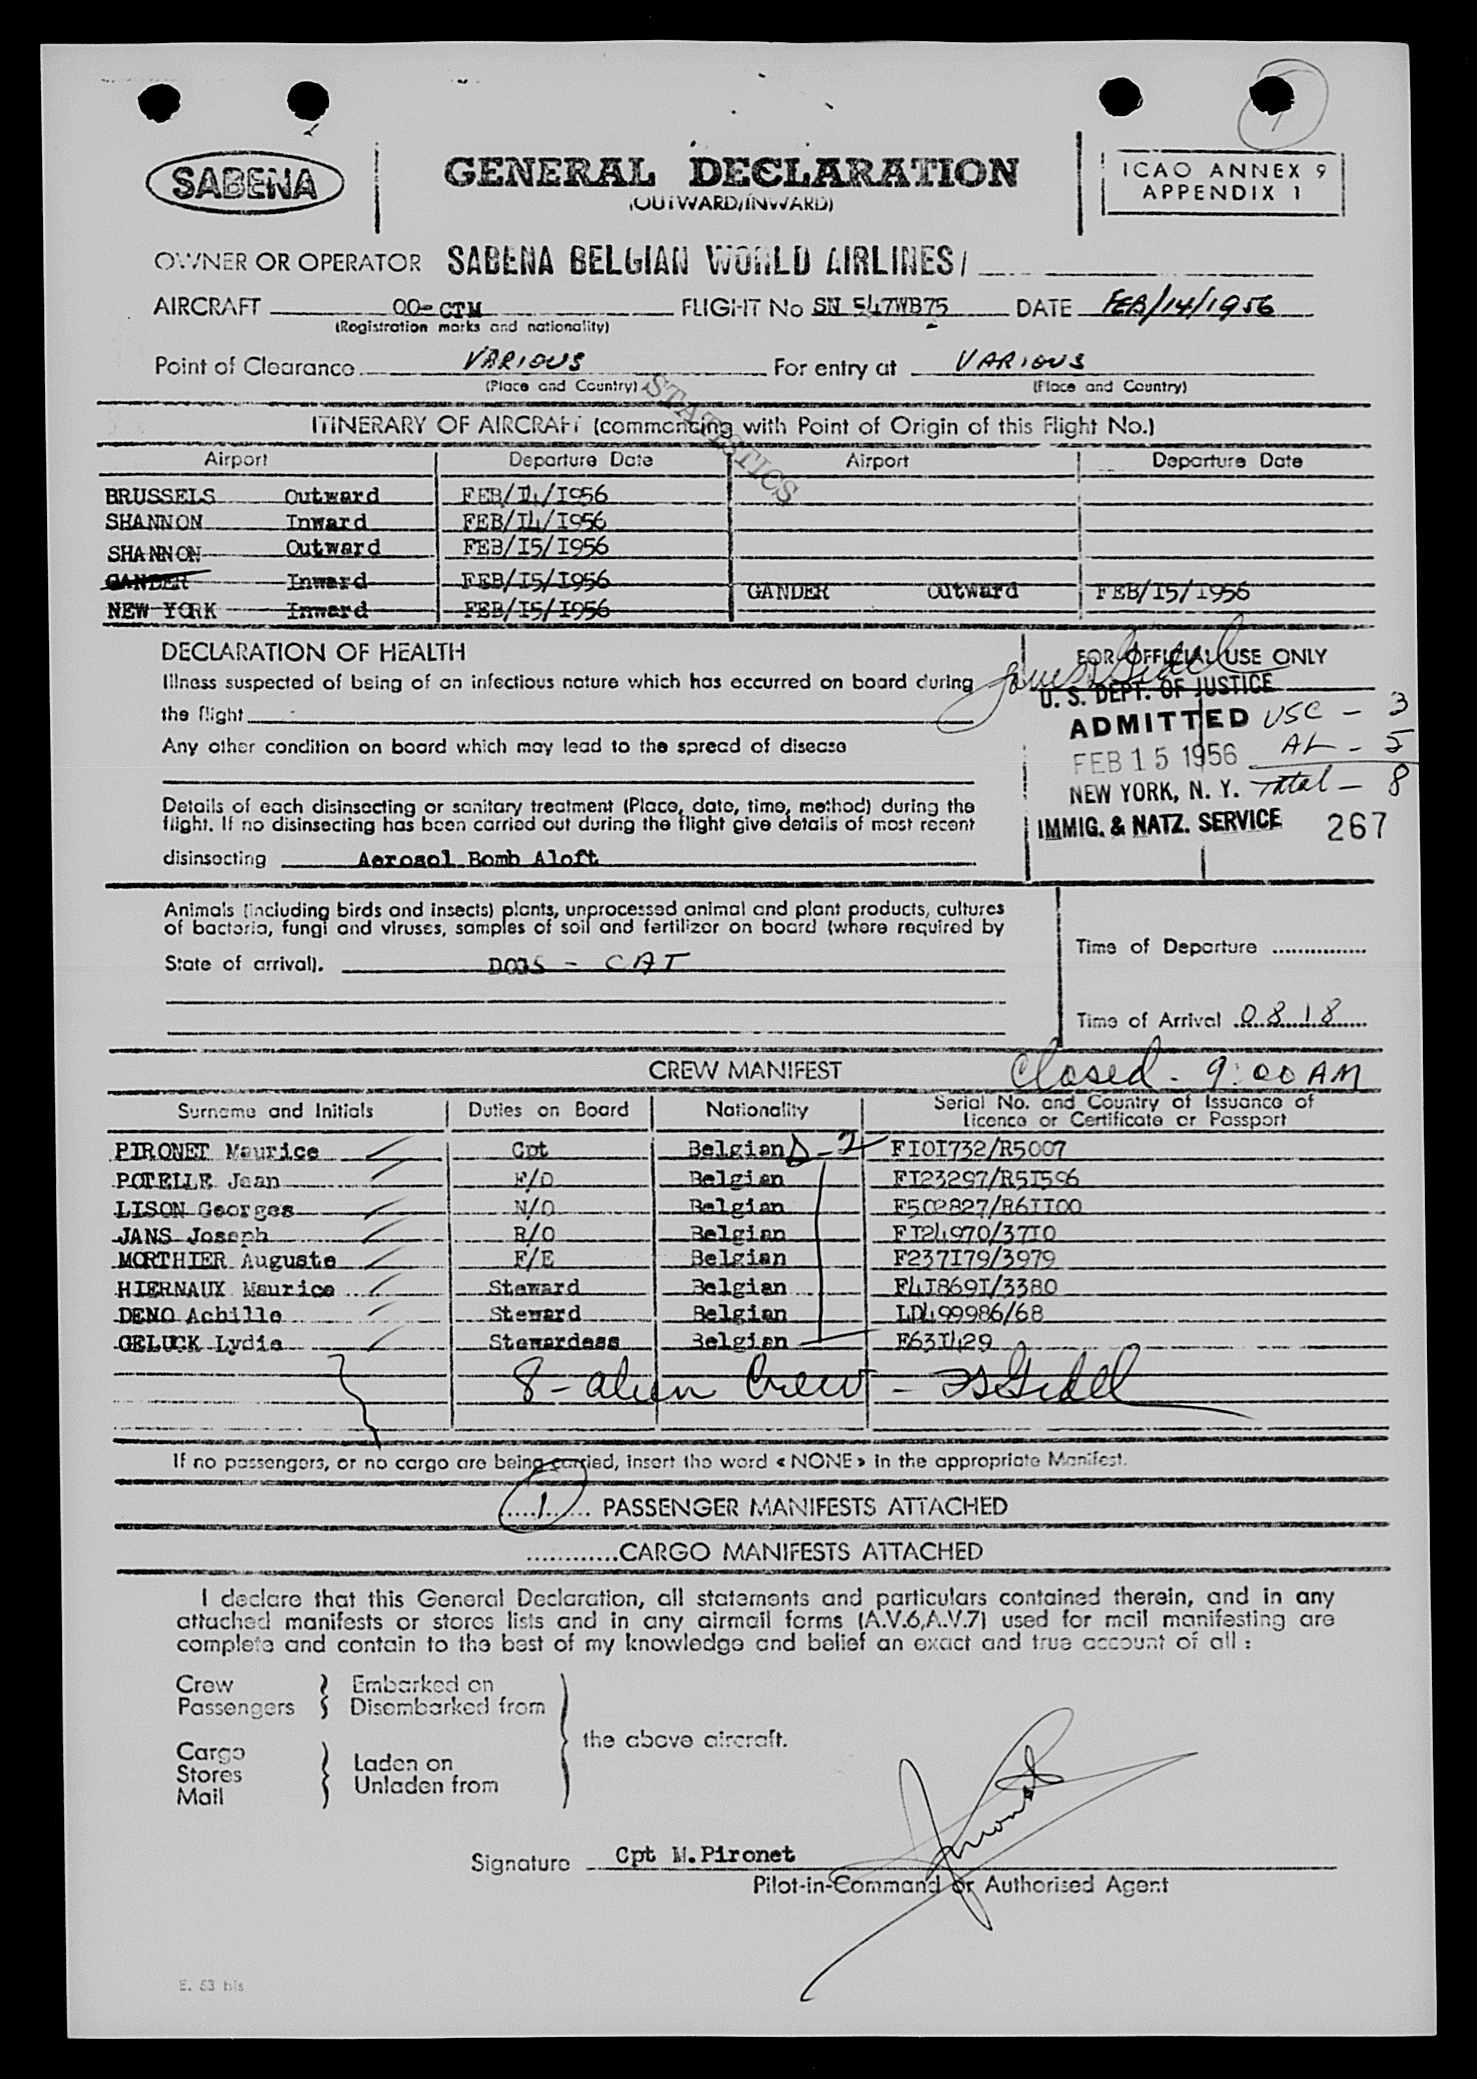 SABENA
GENERAL DECLARATION
(OUTWARD/INWARD)
ICAO ANNEX 9
APPENDIX 1
OWNER OR OPERATOR SABENA BELGIAN WORLD AIRLINES/
AIRCRAFT OO-CTM FLIGHT No SN 547WB75 DATE FEB/14/1956
(Registration marks and nationality)
Point of Clearance VARIOUS For entry at VARIOUS
(Place and Country) (Place and Country)
STATISTICS
ITINERARY OF AIRCRAFT (commencing with Point of Origin of this Flight No.)
Airport Departure Date Airport Departure Date
BRUSSELS Outward FEB/I4/I956
SHANNON Inward FEB/I4/I956
SHANNON Outward FEB/I5/I956
GANDER Inward FEB/I5/I956 GANDER Outward FEB/I5/I956
NEW YORK Inward FEB/I5/I956
DECLARATION OF HEALTH
Illness suspected of being of an infectious nature which has occurred on board during
the flight
Any other condition on board which may lead to the spread of disease
Details of each disinsecting or sanitary treatment (Place, date, time, method) during the
flight. If no disinsecting has been carried out during the flight give details of most recent
disinsecting Aerosol Bomb Aloft
FOR OFFICIAL USE ONLY
U. S. DEPT. OF JUSTICE
ADMITTED USC - 3
FEB 15 1956 AL - 5
NEW YORK, N. Y. Total - 8
IMMIG. & NATZ. SERVICE 267
Animals (including birds and insects) plants, unprocessed animal and plant products, cultures
of bacteria, fungi and viruses, samples of soil and fertilizer on board (where required by
State of arrival). DOGS - CAT
Time of Departure
Time of Arrival 0818
CREW MANIFEST
Closed - 9:00 AM
Surname and Initials Duties on Board Nationality Serial No. and Country of Issuance of
Licence or Certificate or Passport
PIRONET Maurice Cpt Belgian D-2 FI0I732/R5007
POTELLE Jean F/O Belgian FI23297/R5I596
LISON Georges N/O Belgian F502827/R6II00
JANS Joseph R/O Belgian FI24970/37I0
MORTHIER Auguste F/E Belgian F237I79/3979
HIERNAUX Maurice Steward Belgian F4I869I/3380
DENO Achille Steward Belgian LD499986/68
GELUCK Lydie Stewardess Belgian F63I429
8 - alien Crew -
If no passengers, or no cargo are being carried, insert the word « NONE » in the appropriate Manifest.
1 PASSENGER MANIFESTS ATTACHED
............CARGO MANIFESTS ATTACHED
I declare that this General Declaration, all statements and particulars contained therein, and in any
attached manifests or stores lists and in any airmail forms (A.V.6,A.V.7) used for mail manifesting are
complete and contain to the best of my knowledge and belief an exact and true account of all :
Crew Embarked on
Passengers Disembarked from
the above aircraft.
Cargo
Stores Laden on
Mail Unladen from
Signature Cpt M.Pironet
Pilot-in-Command or Authorised Agent
E. 53 bis